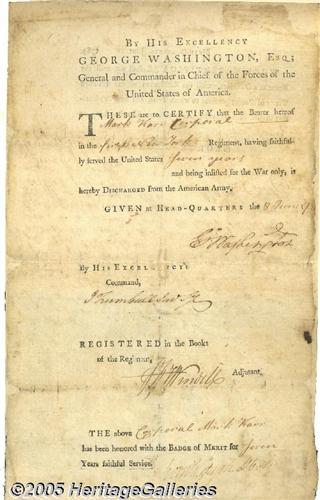 By His Excellency
GEORGE WASHINGTON, Esq;
General and Commander in Chief of the Forces of the
United States of America.
THESE are to CERTIFY that the Bearer hereof
Mark Karr Corporal
in the first New York Regiment, having faithful-
ly served the United States seven years
and being inlisted for the War only, is
hereby DISCHARGED from the American Army.
GIVEN at HEAD-QUARTERS the 8 June
G Washington
By HIS EXCELLENCY's
Command,
J Trumbull
REGISTERED in the Books
of the Regiment,
Adjutant,
THE above Corporal Mark Karr
has been honored with the BADGE of MERIT for seven
Years faithful Service.
©2005 HeritageGalleries